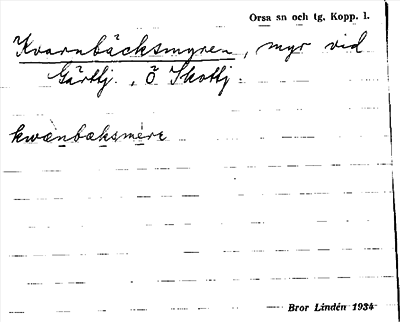 Orsa sn och tg, Kopp. l.
Kvarnbäcksmyren, myr vid
Gärttj., Ö Skottj.
kwænbæksmère
Bror Lindén 1934